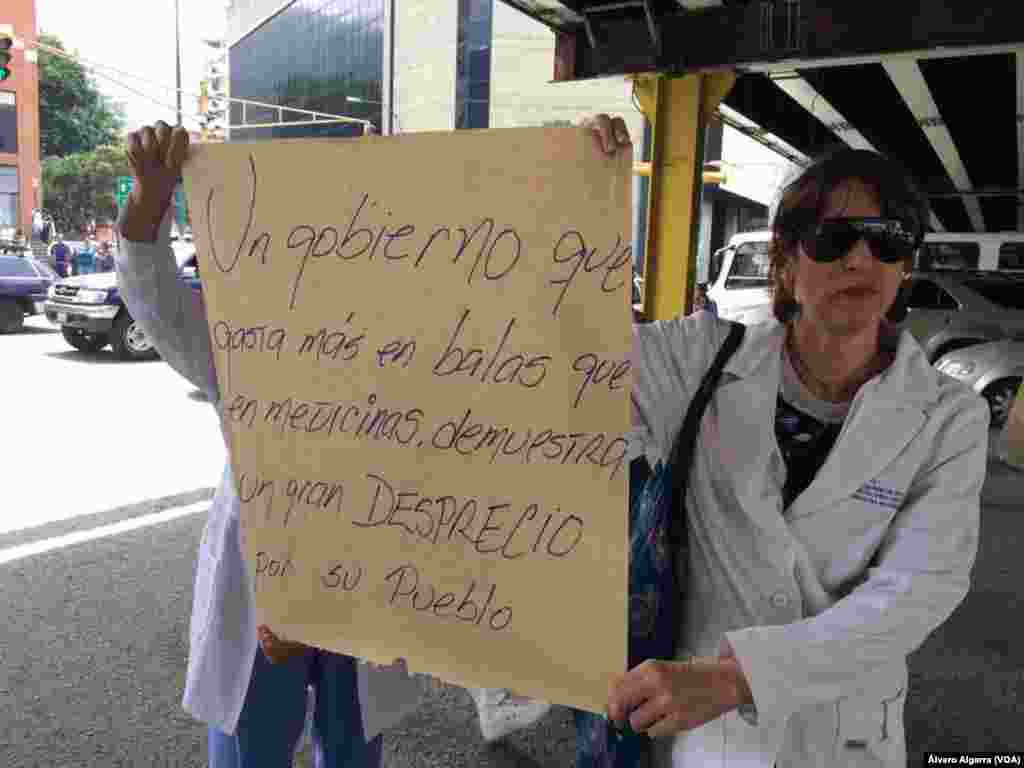 Un gobierno que
gasta más en balas que
en medicinas, demuestra
un gran DESPRECIO
por su Pueblo
Álvaro Algarra (VOA)